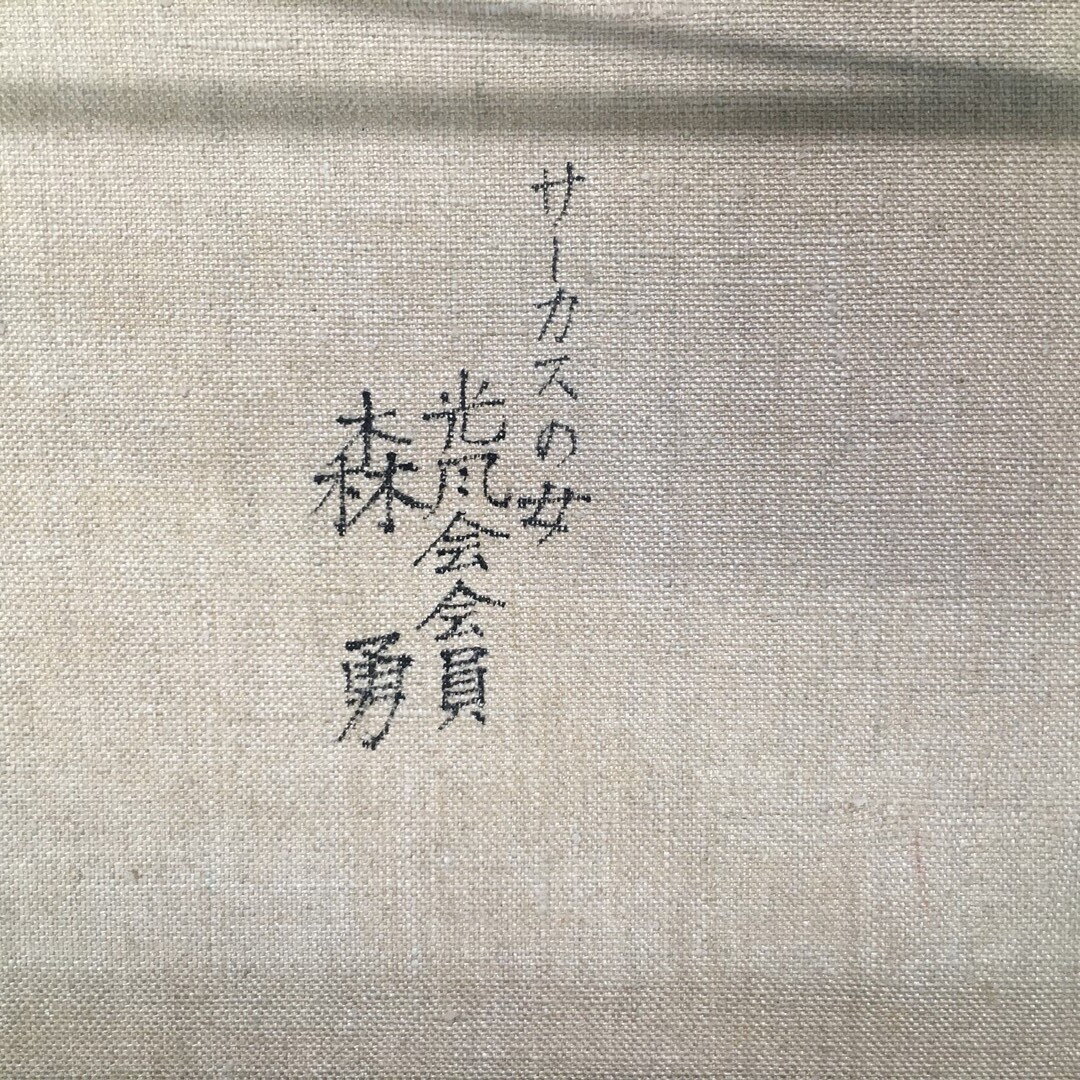 サーカスの女
光風会会員
森 勇